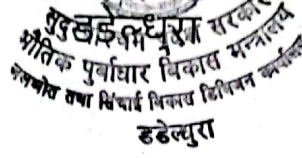 डडेल्धुरा सरकार
भौतिक पुर्वाधार विकास मन्त्रालय
जलस्रोत तथा सिंचाई विकास डिभिजन कार्यालय
डडेल्धुरा